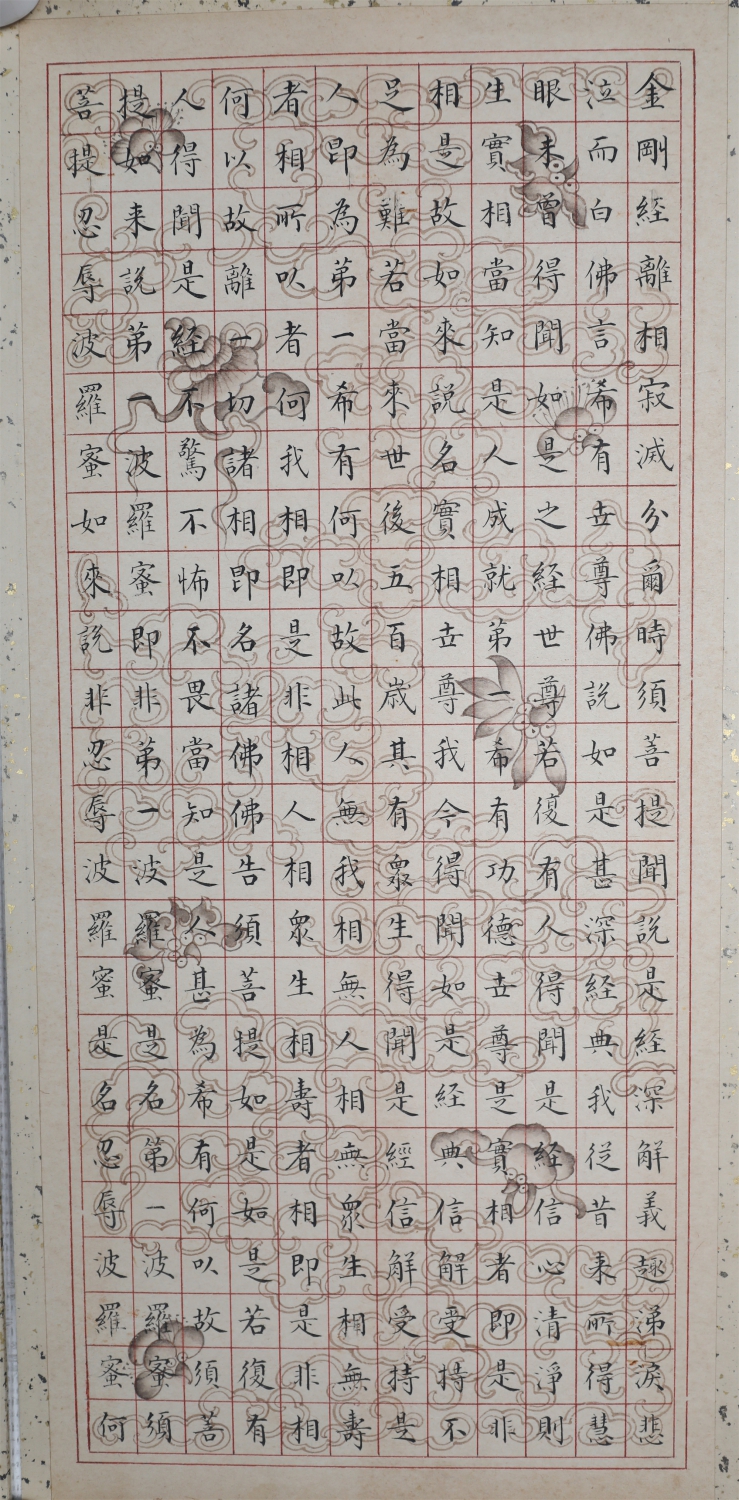 金剛經離相寂滅分爾時須菩提聞說是経深解義趣涕淚悲
泣而白佛言希有世尊佛說如是甚深経典我從昔来所得慧
眼未曾得聞如是之経世尊若復有人得聞是経信心清淨則
生實相當知是人成就第一希有功德世尊是實相者即是非
相是故如來說名實相世尊我今得聞如是経典信解受持不
足為難若當來世後五百歲其有眾生得聞是經信解受持是
人即為第一希有何以故此人無我相無人相無眾生相無壽
者相所以者何我相即是非相人相眾生相壽者相即是非相
何以故離一切諸相即名諸佛佛告須菩提如是如是若復有
人得聞是經不驚不怖不畏當知是人甚為希有何以故須菩
提如来說第一波羅蜜即非第一波羅蜜是名第一波羅蜜須
菩提忍辱波羅蜜如來說非忍辱波羅蜜是名忍辱波羅蜜何